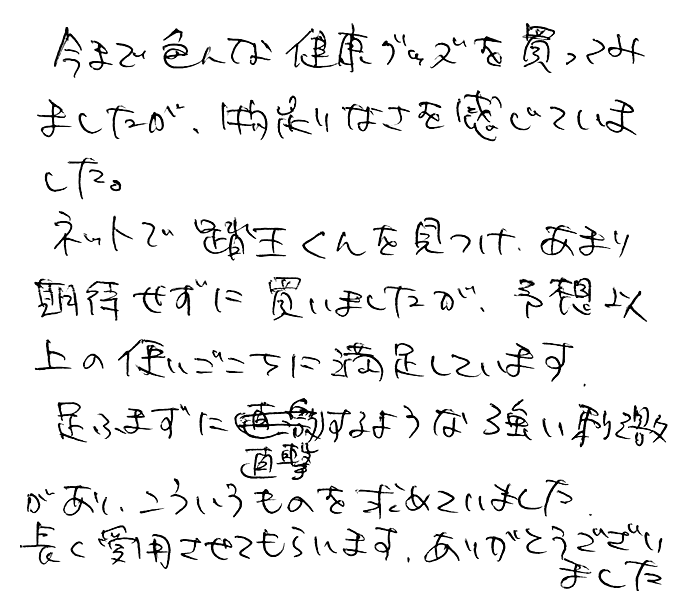 今まで色んな健康グッズを買ってみ
ましたが、物足りなさを感じていま
した。
ネットで踏王くんを見つけ、あまり
期待せずに買いましたが、予想以
上の使いごこちに満足しています.
足ふまずに直撃するような強い刺激
があり、こういうものを求めていました.
長く愛用させてもらいます.ありがとうござい
ました